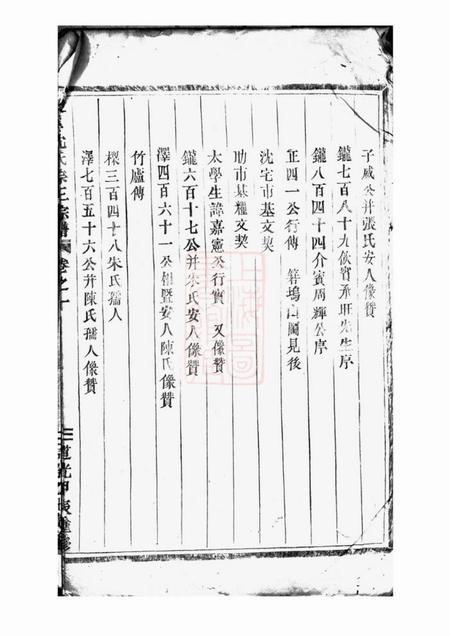 子威公并張氏安人像贊
鑨七百八十九俠賓承旺先生序
鑨八百四十四介賓周輝公序
正四一公行傳 簪塢山圖見後
沈宅市基文契
助市基糧文契
太學生諱嘉憲公行實 又像贊
鑨六百十七公并朱氏安人像贊
澤四百六十一公相暨安人陳氏像贊
竹廬傳
樑三百四十八朱氏孺人
澤七百五十六公并陳氏孺人像贊
沈氏 宗譜 卷之十
道光 重修